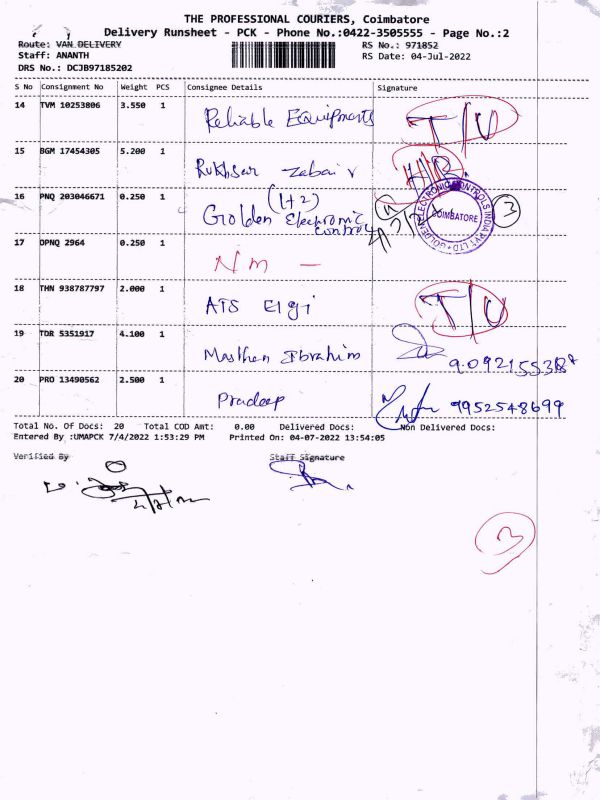 THE PROFESSIONAL COURIERS, Coimbatore
Delivery Runsheet - PCK - Phone No.:0422-3505555 - Page No.:2
Route: VAN DELIVERY RS No.: 971852
Staff: ANANTH RS Date: 04-Jul-2022
DRS No.: DCJB97185202
S No Consignment No Weight PCS Consignee Details Signature
14 TVM 10253806 3.550 1 Reliable Equipments T/U
15 BGM 17454305 5.200 1 Rukhsar Zabair
16 PNQ 203046671 0.250 1 (1+2) Golden Electronic Controls
GOLDEN ELECTRONIC CONTROLS INDIA PVT LTD COIMBATORE 3
17 OPNQ 2964 0.250 1 Nm —
18 THN 938787797 2.000 1 ATS Elgi T/U
19 TDR 5351917 4.100 1 Masthan Ibrahim
20 PRO 13490562 2.500 1 Pradeep 9952548699
Total No. Of Docs: 20 Total COD Amt: 0.00 Delivered Docs: Non Delivered Docs:
Entered By :UMAPCK 7/4/2022 1:53:29 PM Printed On: 04-07-2022 13:54:05
Verified By Staff Signature
3